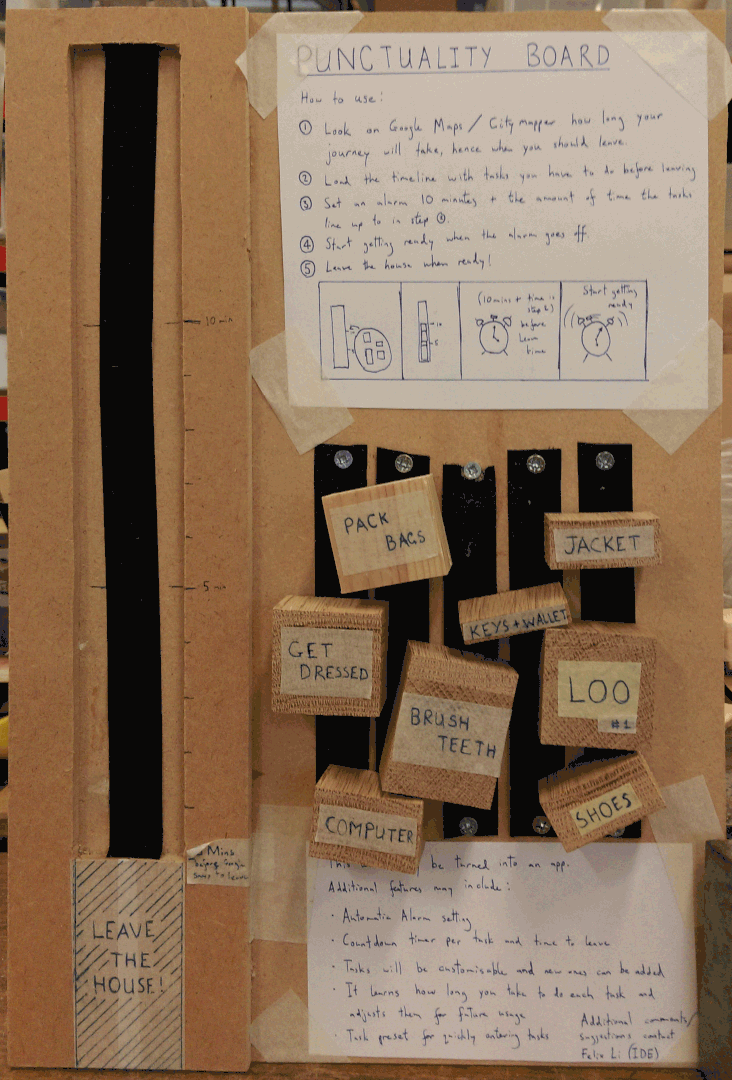 PUNCTUALITY BOARD
How to use:
① Look on Google Maps / Citymapper how long your
journey will take, hence when you should leave.
② Load the timeline with tasks you have to do before leaving
③ Set an alarm 10 minutes + the amount of time the tasks
line up to in step ②.
④ Start getting ready when the alarm goes off.
⑤ Leave the house when ready!
(10 mins + time in
step 2)
before
leave
time
Start getting
ready
10
5
10 min
5 min
PACK
BAGS
JACKET
KEYS + WALLET
GET
DRESSED
LOO
#1
BRUSH
TEETH
SHOES
COMPUTER
Mins
LEAVE
THE
HOUSE!
This be turned into an app.
Additional features may include:
· Automatic Alarm setting
· Countdown timer per task and time to leave
· Tasks will be customisable and new ones can be added
· It learns how long you take to do each task and
adjusts them for future usage
· Task preset for quickly entering tasks
Additional comments/
suggestions contact
Felix Li (IDE)